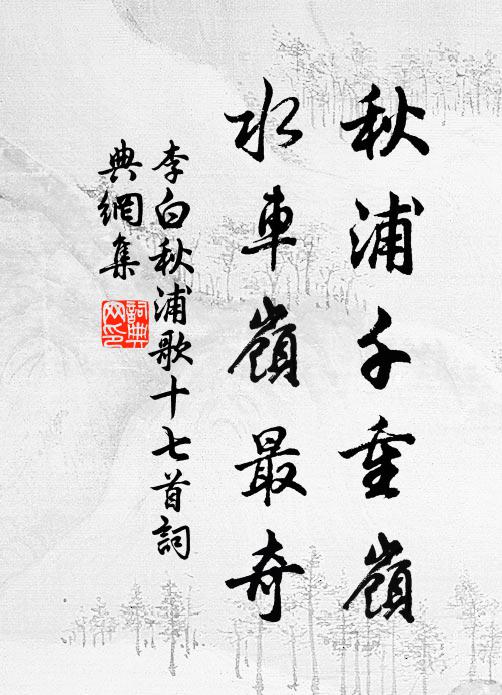 秋浦千重嶺
水車嶺最奇
李白秋浦歌十七首詞
典網集
詞典網印